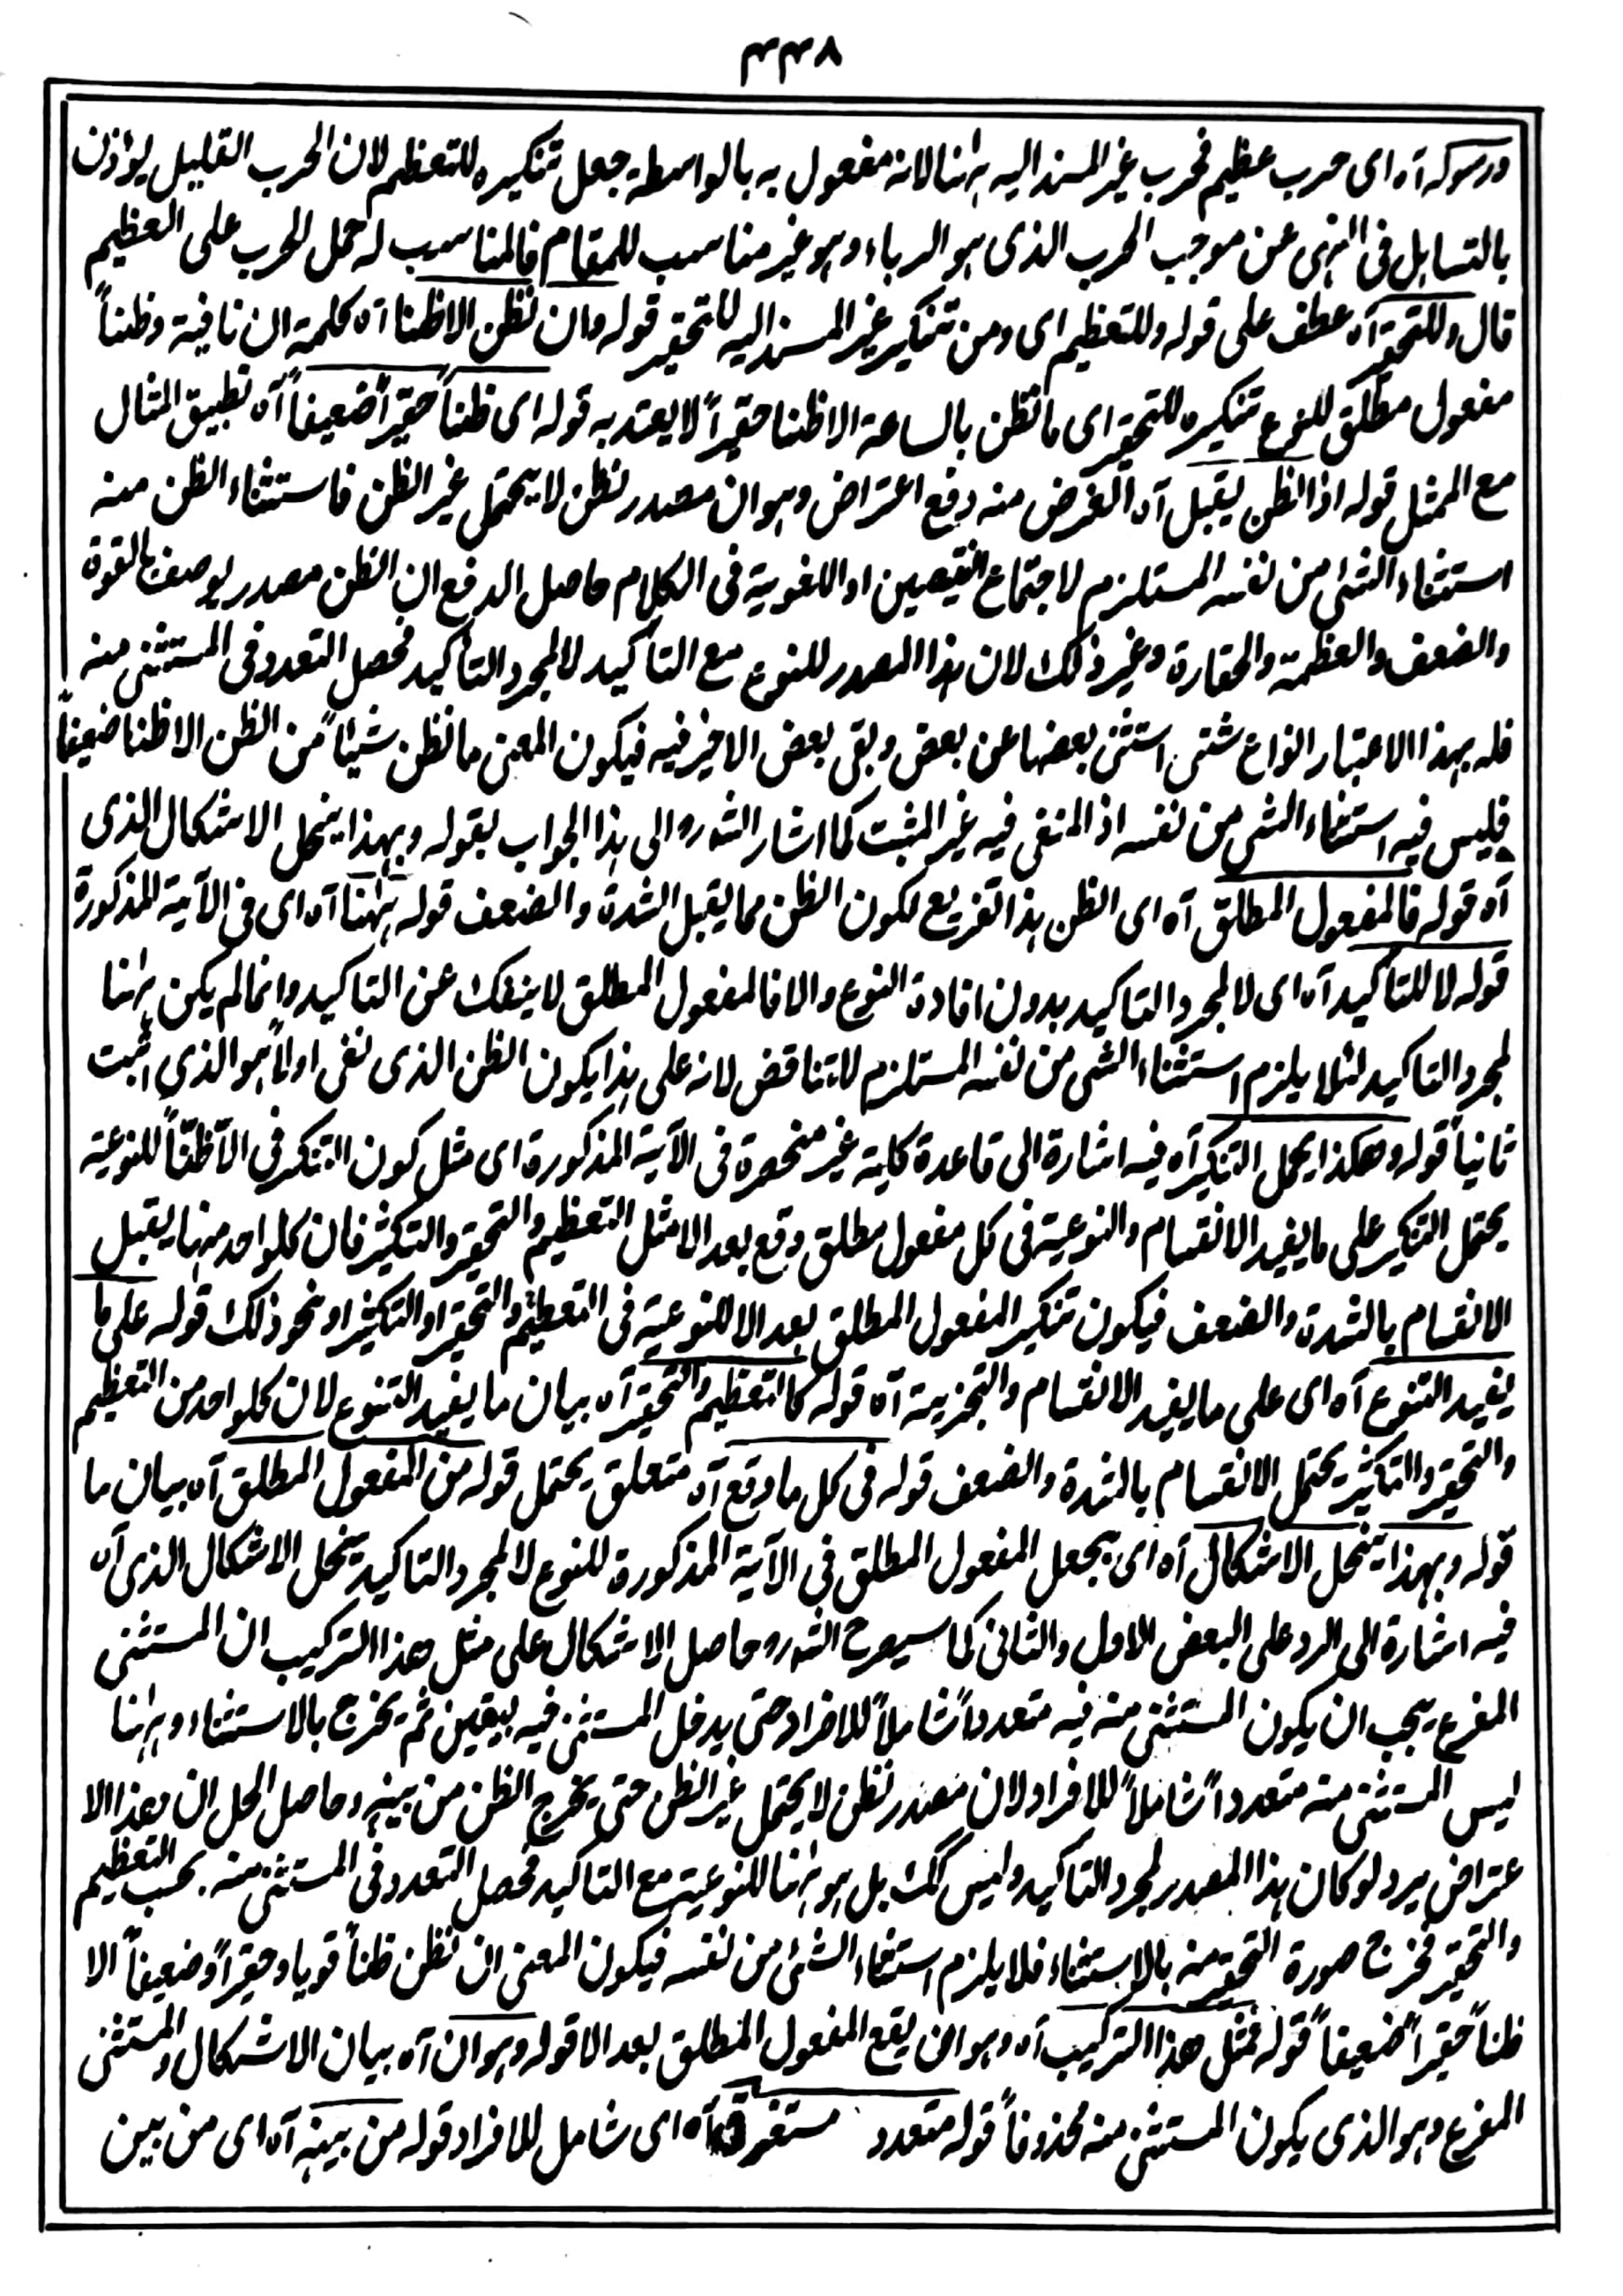 ٤٤٨
ورسوله آه اى حرب عظيم فحرب غير المسند اليه ههنا لانه مفعول به بالواسطة جعل تنكيره للتعظيم لان الحرب القليل يؤذن
بالتساهل فى النهى عن موجب الحرب الذى هو الرباء وهو غير مناسب للمقام فالمناسب له حمل الحرب على العظيم
قال وللتحقير آه عطف على قوله وللتعظيم اى ومن تنكير غير المسند اليه للتحقير قوله وان نظن الا ظنا آه كلمة ان نافية وظناً
مفعول مطلق للنوع تنكيره للتحقير اى ما نظن بالساعة الا ظنا حقيراً لا يعتد به قوله اى ظناً حقيراً ضعيفاً آه تطبيق المثال
مع الممثل قوله اذ الظن يقبل آه الغرض منه دفع اعتراض وهو ان مصدر نظن لا يحتمل غير الظن فاستثناء الظن منه
استثناء الشئ من نفسه المستلزم لاجتماع النقيصين او اللغوية فى الكلام حاصل الدفع ان الظن مصدر يوصف بالقوة
والضعف والعظمة والحقارة وغير ذلك لان هذا المصدر للنوع مع التأكيد لا لمجرد التأكيد فحصل التعدد فى المستثنى منه
فله بهذا الاعتبار انواع شتى استثنى بعضها عن بعض وبقى بعض الاخير فيه فيكون المعنى ما نظن شيئاً من الظن الا ظنا ضعيفاً
فليس فيه استثناء الشى من نفسه اذ المنفى فيه غير المثبت كما اشار الشه ره الى هذا الجواب بقوله وبهذا ينحل الاشكال الذى
آه قوله فالمفعول المطلق آه اى الظن هذا تفريع لكون الظن مما يقبل الشدة والضعف قوله ههنا آه اى فى الآية المذكورة
قوله لا للتأكيد آه اى لا لمجرد التاكيد بدون افادة النوع والا فالمفعول المطلق لا ينفك عن التاكيد وانما لم يكن ههنا
لمجرد التاكيد لئلا يلزم استثناء الشى من نفسه المستلزم للتناقض لانه على هذا يكون الظن الذى نفى اولاً هو الذى اثبت
ثانياً قوله وهكذا يحمل التنكير آه فيه اشارة الى قاعدة كلية غير منحصرة فى الآية المذكورة اى مثل كون التنكير فى الا ظنّاً للنوعية
يحتمل التنكير على ما يفيد الانقسام والنوعية فى كل مفعول مطلق وقع بعد الا مثل التعظيم والتحقير والتكثير فان كلواحد منها يقبل
الانقسام بالشدة والضعف فيكون تنكير المفعول المطلق بعد الا للنوعية فى التعظيم والتحقير او التكثير او نحو ذلك قوله على ما
يفيد التنوع آه اى على ما يفيد الانقسام والتجزية آه قوله كالتعظيم والتحقير آه بيان ما يفيد التنوع لان كلواحد من التعظيم
والتحقير والتكثير يحتمل الانقسام بالشدة والضعف قوله فى كل ما وقع آه متعلق يحتمل قوله من المفعول المطلق آه بيان ما
قوله وبهذا ينحل الاشكال آه اى بجعل المفعول المطلق فى الآية المذكورة للنوع لا لمجرد التاكيد ينحل الاشكال الذى آه
فيه اشارة الى الرد على البعض الاول والثانى كما سيصرح الشه ره وحاصل الاشكال على مثل هذا التركيب ان المستثنى
المفرع يجب ان يكون المستثنى منه فيه متعدداً شاملاً للافراد حتى يدخل المستثنى فيه بيقين ثم يخرج بالاستثناء وههنا
ليس المستثنى منه متعدداً شاملاً للافراد لان مصدر نظن لا يحتمل غير الظن حتى يخرج الظن من بينه وحاصل الحل ان هذا الا
عتراض يرد لو كان هذا المصدر لمجرد التاكيد وليس كك بل هو ههنا للنوعية مع التاكيد فحصل التعدد فى المستثنى منه بحسب التعظيم
والتحقير فخرج صورة التحقير منه بالاستثناء فلا يلزم استثناء الشئ من نفسه فيكون المعنى ان نظن ظناً قويا وحقيراً وضعيفاً الا
ظناً حقيراً ضعيفاً قوله فمثل هذا التركيب آه وهو ان يقع المفعول المطلق بعد الا قوله وهو ان آه بيان الاشكال والمستثنى
المفرع وهو الذى يكون المستثنى منه محذوفاً قوله متعدد مستغرق آه اى شامل للافراد قوله من بينه آه اى من بين